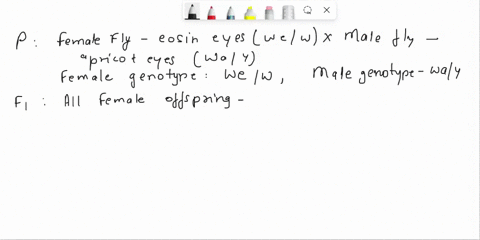 P: female Fly - eosin eyes (we/w) × Male fly -
apricot eyes (wa/y)
Female genotype: we/w, Male genotype - wa/y
F1: All female offspring -